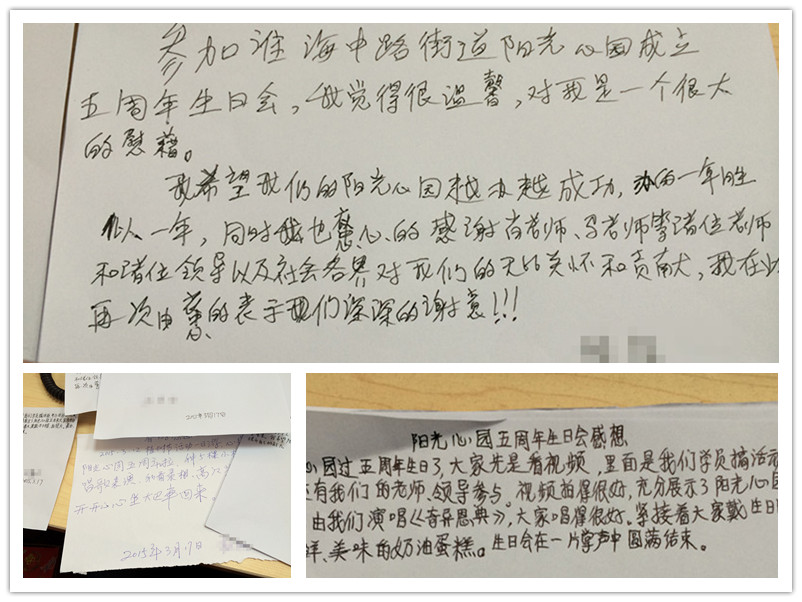 参加淮海中路街道阳光心园成立
五周年生日会，我觉得很温馨，对我是一个很大
的慰藉。
我希望我们的阳光心园越办越成功，办的一年胜
似一年，同时我也衷心的感谢肖老师、马老师等诸位老师
和诸位领导以及社会各界对我们的无比关怀和贡献，我在此
再次由衷的表示我们深深的谢意!!!
2015年3月17日
阳光心园五周年
唱歌表演
开开心心
2015年3月17日
阳光心园五周年生日会感想
心园过五周年生日了，大家先是看视频，里面是我们学员搞活动
有我们的老师、领导参与。视频拍得很好，充分展示了阳光心园
由我们演唱《奇异恩典》，大家唱得很好。紧接着大家戴生日
鲜、美味的奶油蛋糕。生日会在一片掌声中圆满结束。